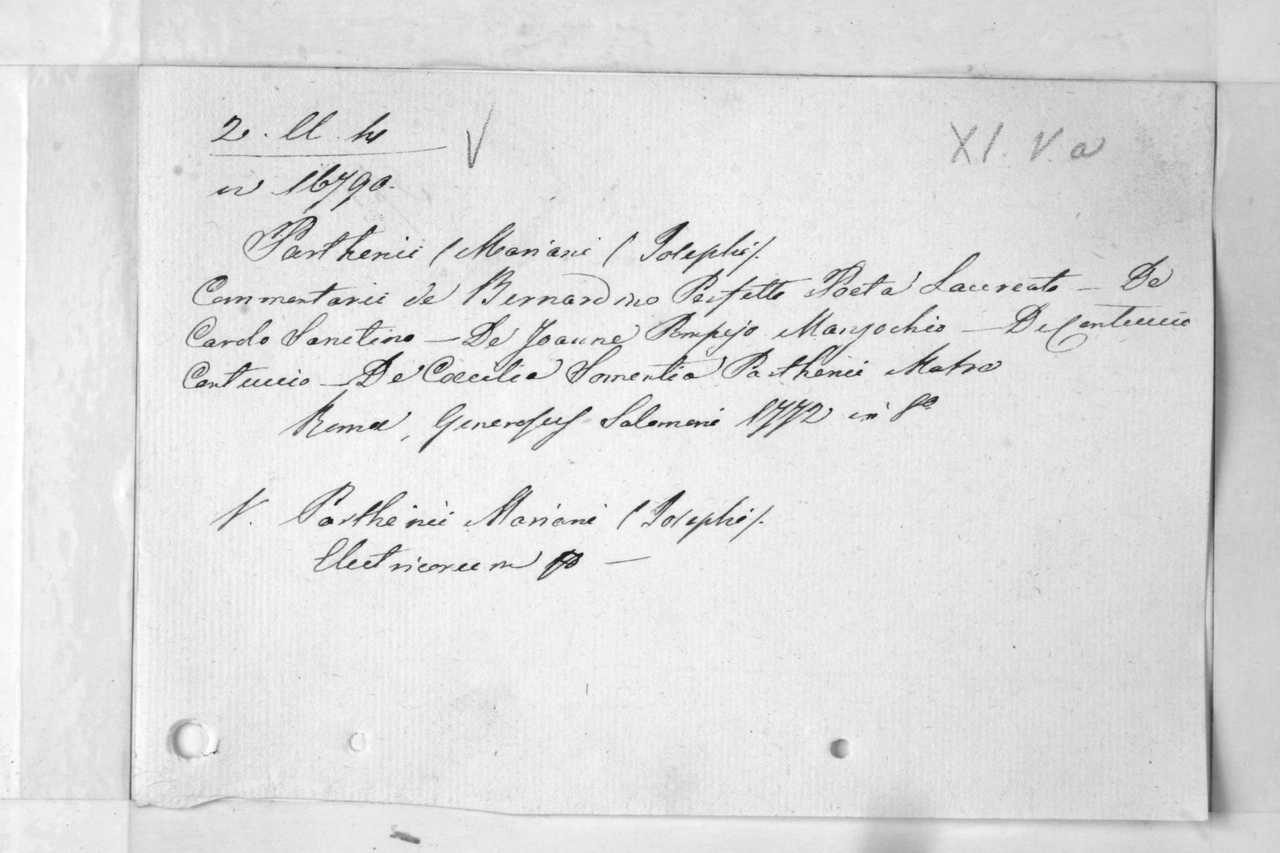 2. ll. 4
V
XI. V. a
16790.
Parthenii (Mariani (Josephi).
Commentarii de Bernardino Perfetto Poeta Laureato — De
Cardo Sanctino — De Joanne Pompejo Manjochio — De Contuccio
Contuccio — De Caecilia Somentia Parthenii Matre
Romae, Generosus Salomoni 1772 in 8º
V. Parthenii Mariani (Josephi).
Electricorum —